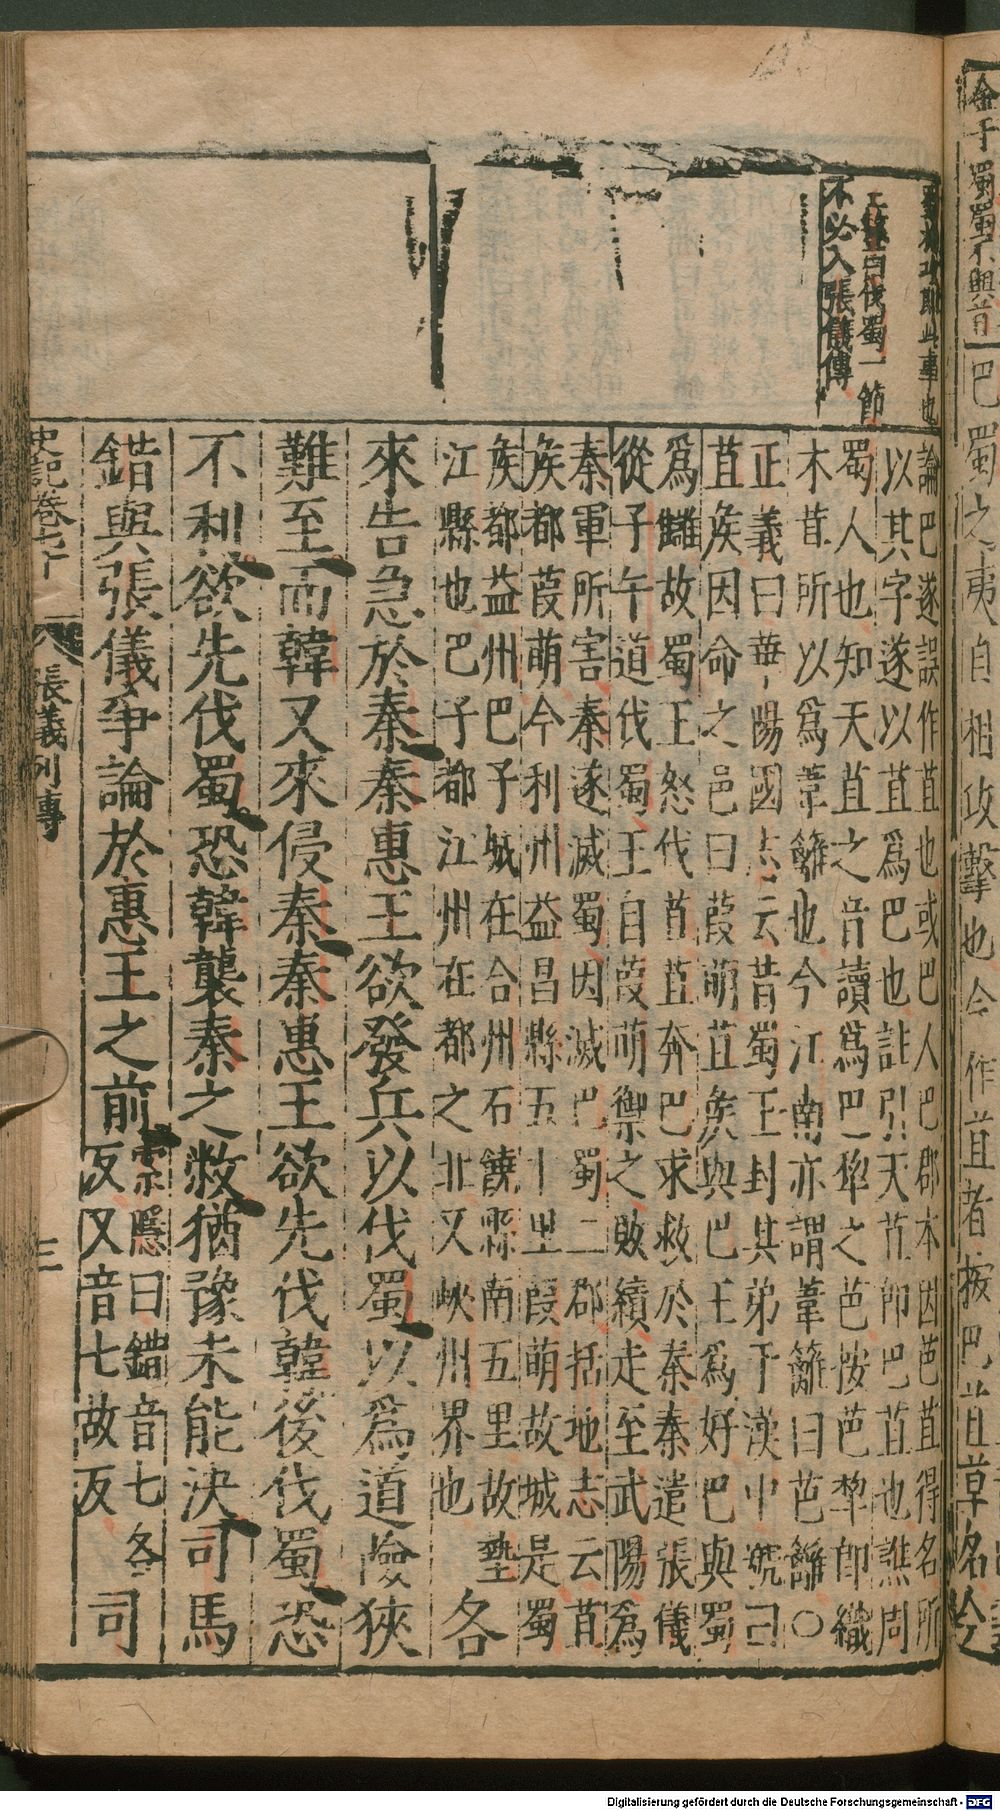 論巴遂誤作苴也或巴人巴郡本因芭苴得名所
以其字遂以苴爲巴也註引天苴卽巴苴也譙周
蜀人也知天苴之音讀爲芭犂之芭按芭犂卽織
木葺所以爲葦籬也今江南亦謂葦籬曰芭籬○
正義曰華陽國志云昔蜀王封其弟于漢中號曰
苴矦因命之邑曰葭萌苴矦與巴王爲好巴與蜀
爲讎故蜀王怒伐苴苴奔巴求救於秦秦遣張儀
從子午道伐蜀王自葭萌禦之敗績走至武陽爲
秦軍所害秦遂滅蜀因滅巴蜀二郡括地志云苴
矦都葭萌今利州益昌縣五十里葭萌故城是蜀
矦都益州巴子城在合州石饒縣南五里故墊
江縣也巴子都江州在都之北又峽州界也
各
來告急於秦秦惠王欲發兵以伐蜀以爲道險狹
難至而韓又來侵秦秦惠王欲先伐韓後伐蜀恐
不利欲先伐蜀恐韓襲秦之敝猶豫未能決司馬
錯與張儀爭論於惠王之前
索隱曰錯音七各
反又音七故反
司
史記卷七十
張儀列傳
三
王韋曰伐蜀一節
不必入張儀傳